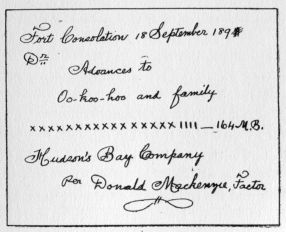 Fort Consolation 18 September
Dr.
Advances to
Oo-koo-hoo and family
xxxxxxxxxxxxxxxx 1111 — 164 M.B.
Hudson's Bay Company
per Donald Mackenzie, Factor